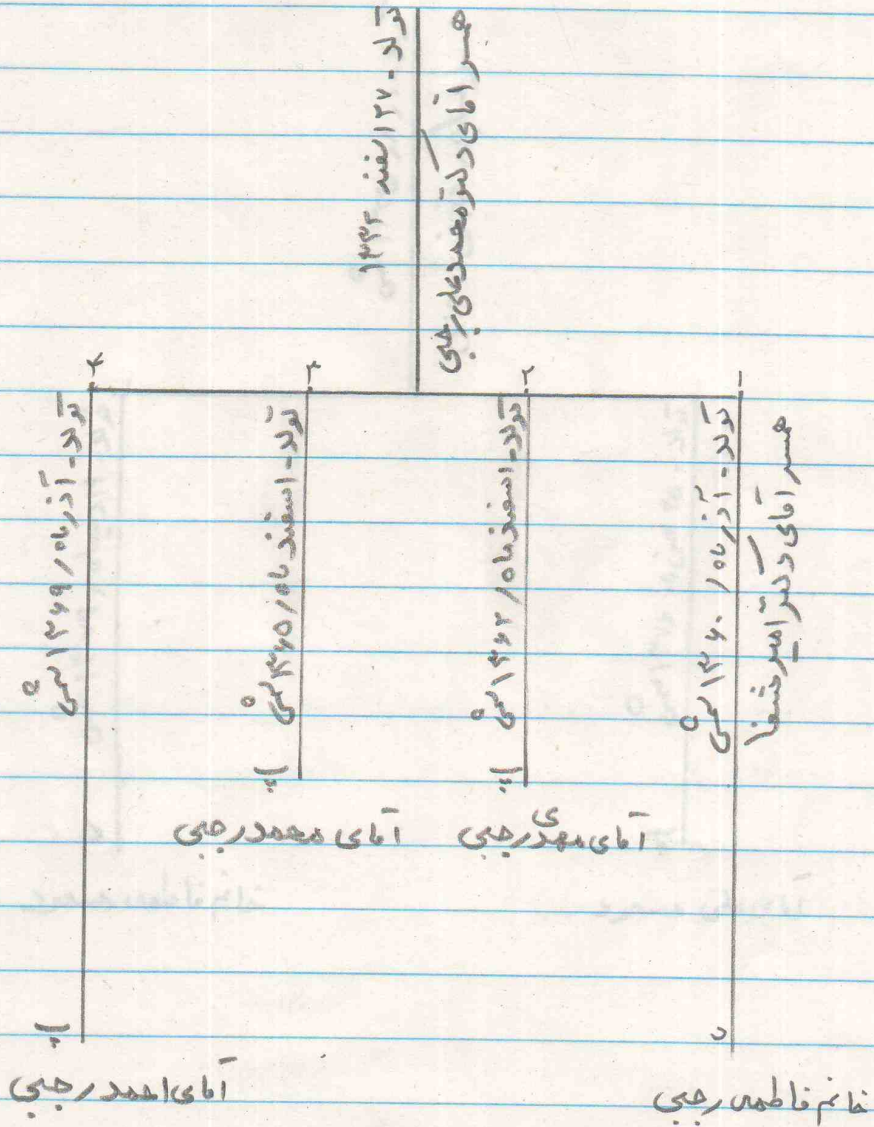 همسر آقای دکتر محمدعلی رجبی
تولد - ۲۷ اسفند ۱۳۳۲
۱
تولد - آذر ماه / ۱۳۶۰ شمسی
همسر آقای دکتر امیر شفا
د
خانم فاطمه رجبی
۲
تولد - اسفند ماه / ۱۳۶۲ شمسی
پ
آقای مهدی رجبی
۳
تولد - اسفند ماه / ۱۳۶۵ شمسی
پ
آقای محمد رجبی
۴
تولد - آذر ماه / ۱۳۶۹ شمسی
پ
آقای احمد رجبی